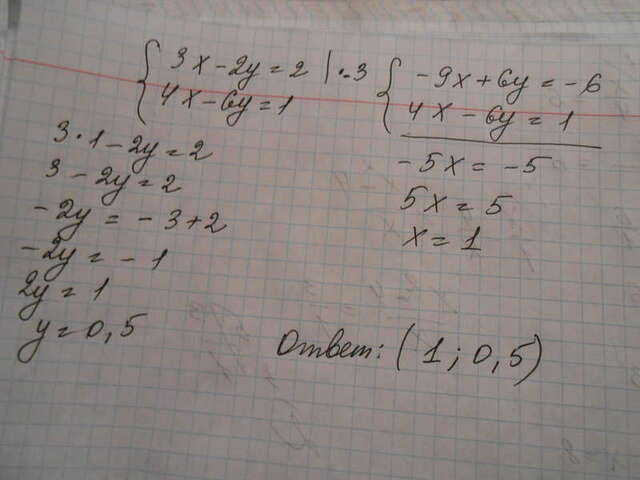 3x - 2y = 2 | · -3
4x - 6y = 1
-9x + 6y = -6
4x - 6y = 1
-5x = -5
5x = 5
x = 1
3 · 1 - 2y = 2
3 - 2y = 2
-2y = -3 + 2
-2y = -1
2y = 1
y = 0,5
Ответ: (1; 0,5)